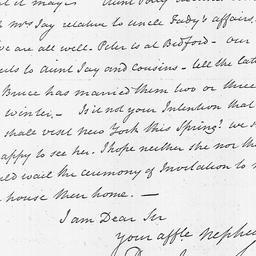 Mrs Jay relative to uncle Fady's affairs.
we are all well - Peter is at Bedford - our
to Aunt Jay and Cousins - tell the latter
Bruce has married them two or three
Winter. - Is it not your Intention that
shall visit new York this Spring? we
happy to see her. I hope neither she nor the
wait the ceremony of Invitation to
house their home. -
I am Dear Sir
your affte. nephew